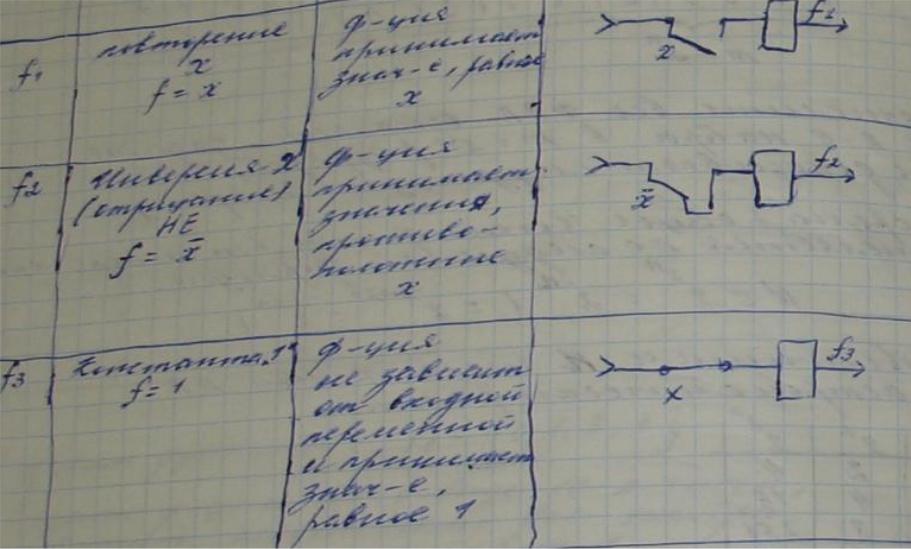 f1
повторение
x
f = x
ф-ция
принимает
знач-е, равное
x
x
f1
f2
Инверсия x
(отрицание)
НЕ
f = x̄
ф-ция
принимает
значения,
противо-
положные
x
x̄
f2
f3
Константа "1"
f = 1
ф-ция
не зависит
от входной
переменной
и принимает
знач-е,
равное 1
x
f3